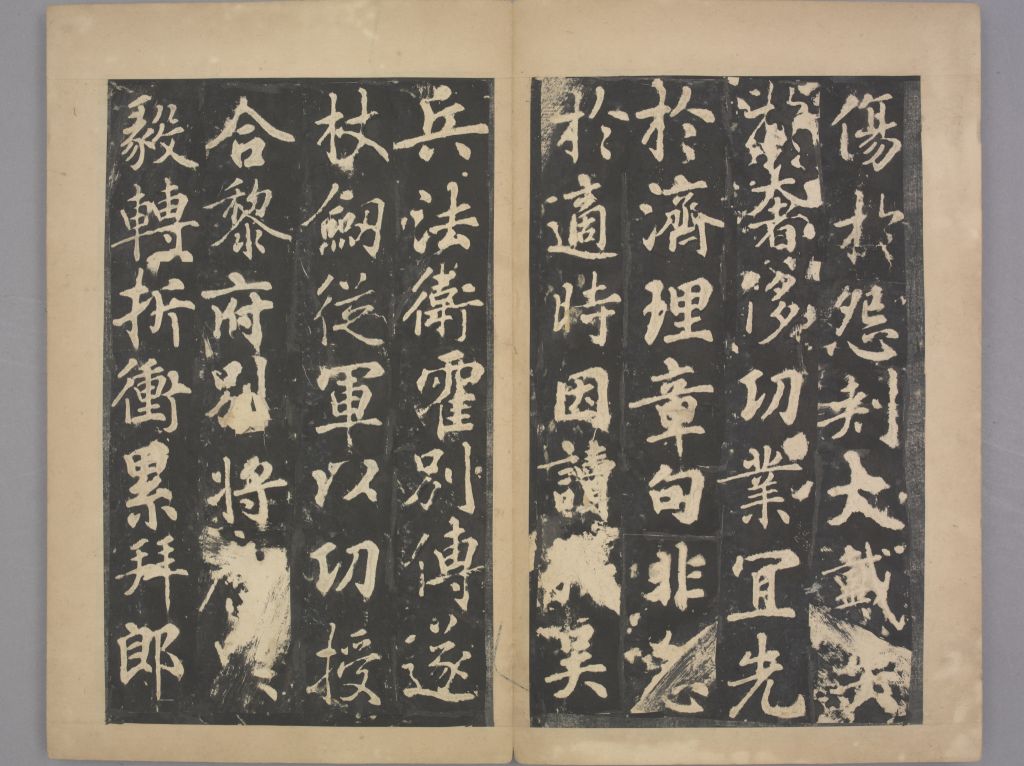 傷於怨刺大戴失
於奢侈功業宜先
於濟理章句非
於適時因讀吳
兵法衛霍別傳遂
杖劒從軍以功授
合黎府別將
毅轉折衝累拜郎